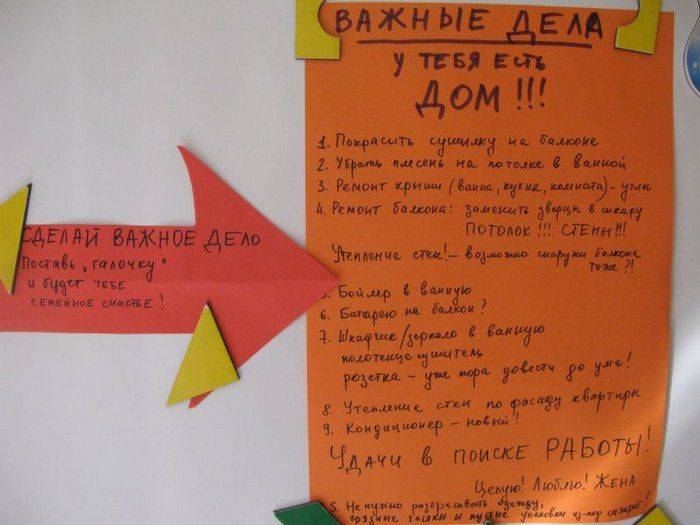 ВАЖНЫЕ ДЕЛА
У ТЕБЯ ЕСТЬ
ДОМ!!!
1. Покрасить сушилку на балконе
2. Убрать плесень на потолке в ванной
3. Ремонт крыши (ванна, кухня, комната) - углы
4. Ремонт балкона: заменить дверцы в шкафу
ПОТОЛОК!!! СТЕНЫ!!!
Утепление стен! - возможно снаружи балкона
тоже?!
5. Бойлер в ванную
6. Батарею на балкон?
7. Шкафчик/зеркало в ванную
полотенцесушитель
розетка - уже пора довести до ума!
8. Утепление стен по фасаду квартиры
9. Кондиционер - новый!
УДАЧИ В ПОИСКЕ РАБОТЫ!
Целую! Люблю! ЖЕНА
5. Не нужно разбрасывать одежду,
грязные чашки и пустые упаковки из-под сигарет!
СДЕЛАЙ ВАЖНОЕ ДЕЛО
Поставь „галочку"
и будет тебе
семейное счастье!